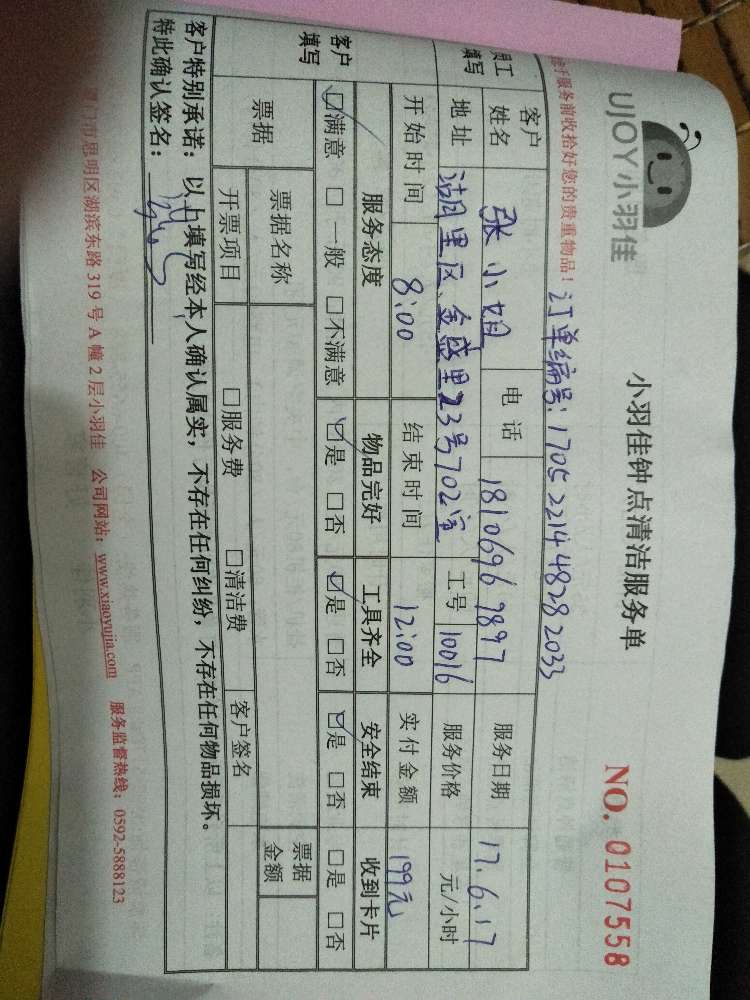 UJOY小羽佳
小羽佳钟点清洁服务单
NO. 0107558
服务前收拾好您的贵重物品!
订单编号: 1705221448282033
员工填写
客户姓名 张小姐 电话 18106969897 服务日期 17.6.17
地址 湖里区金盛里23号702室 工号 10016 服务价格 元/小时
开始时间 8:00 结束时间 12:00 实付金额 199元
客户填写
服务态度 物品完好 工具齐全 安全结束 收到卡片
☑满意 □一般 □不满意 ☑是 □否 ☑是 □否 ☑是 □否 □是 □否
票据 票据名称 票据金额
开票项目 □服务费 □清洁费 客户签名
客户特别承诺:以上填写经本人确认属实,不存在任何纠纷,不存在任何物品损坏。
特此确认签名:
门市思明区湖滨东路 319 号 A 幢 2 层小羽佳 公司网站:www.xiaoyujia.com 服务监督热线:0592-5888123